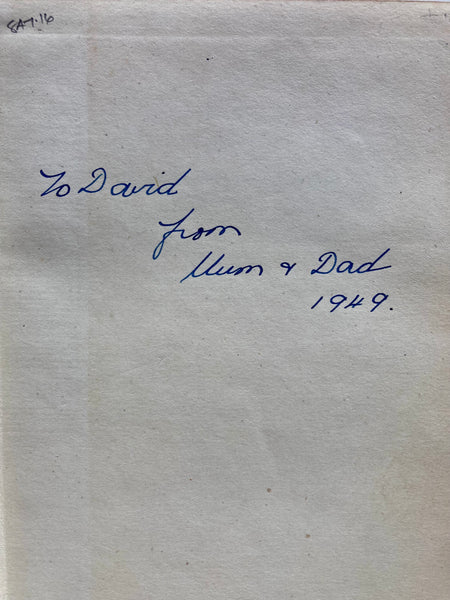 To David
from
Mum & Dad
1949.